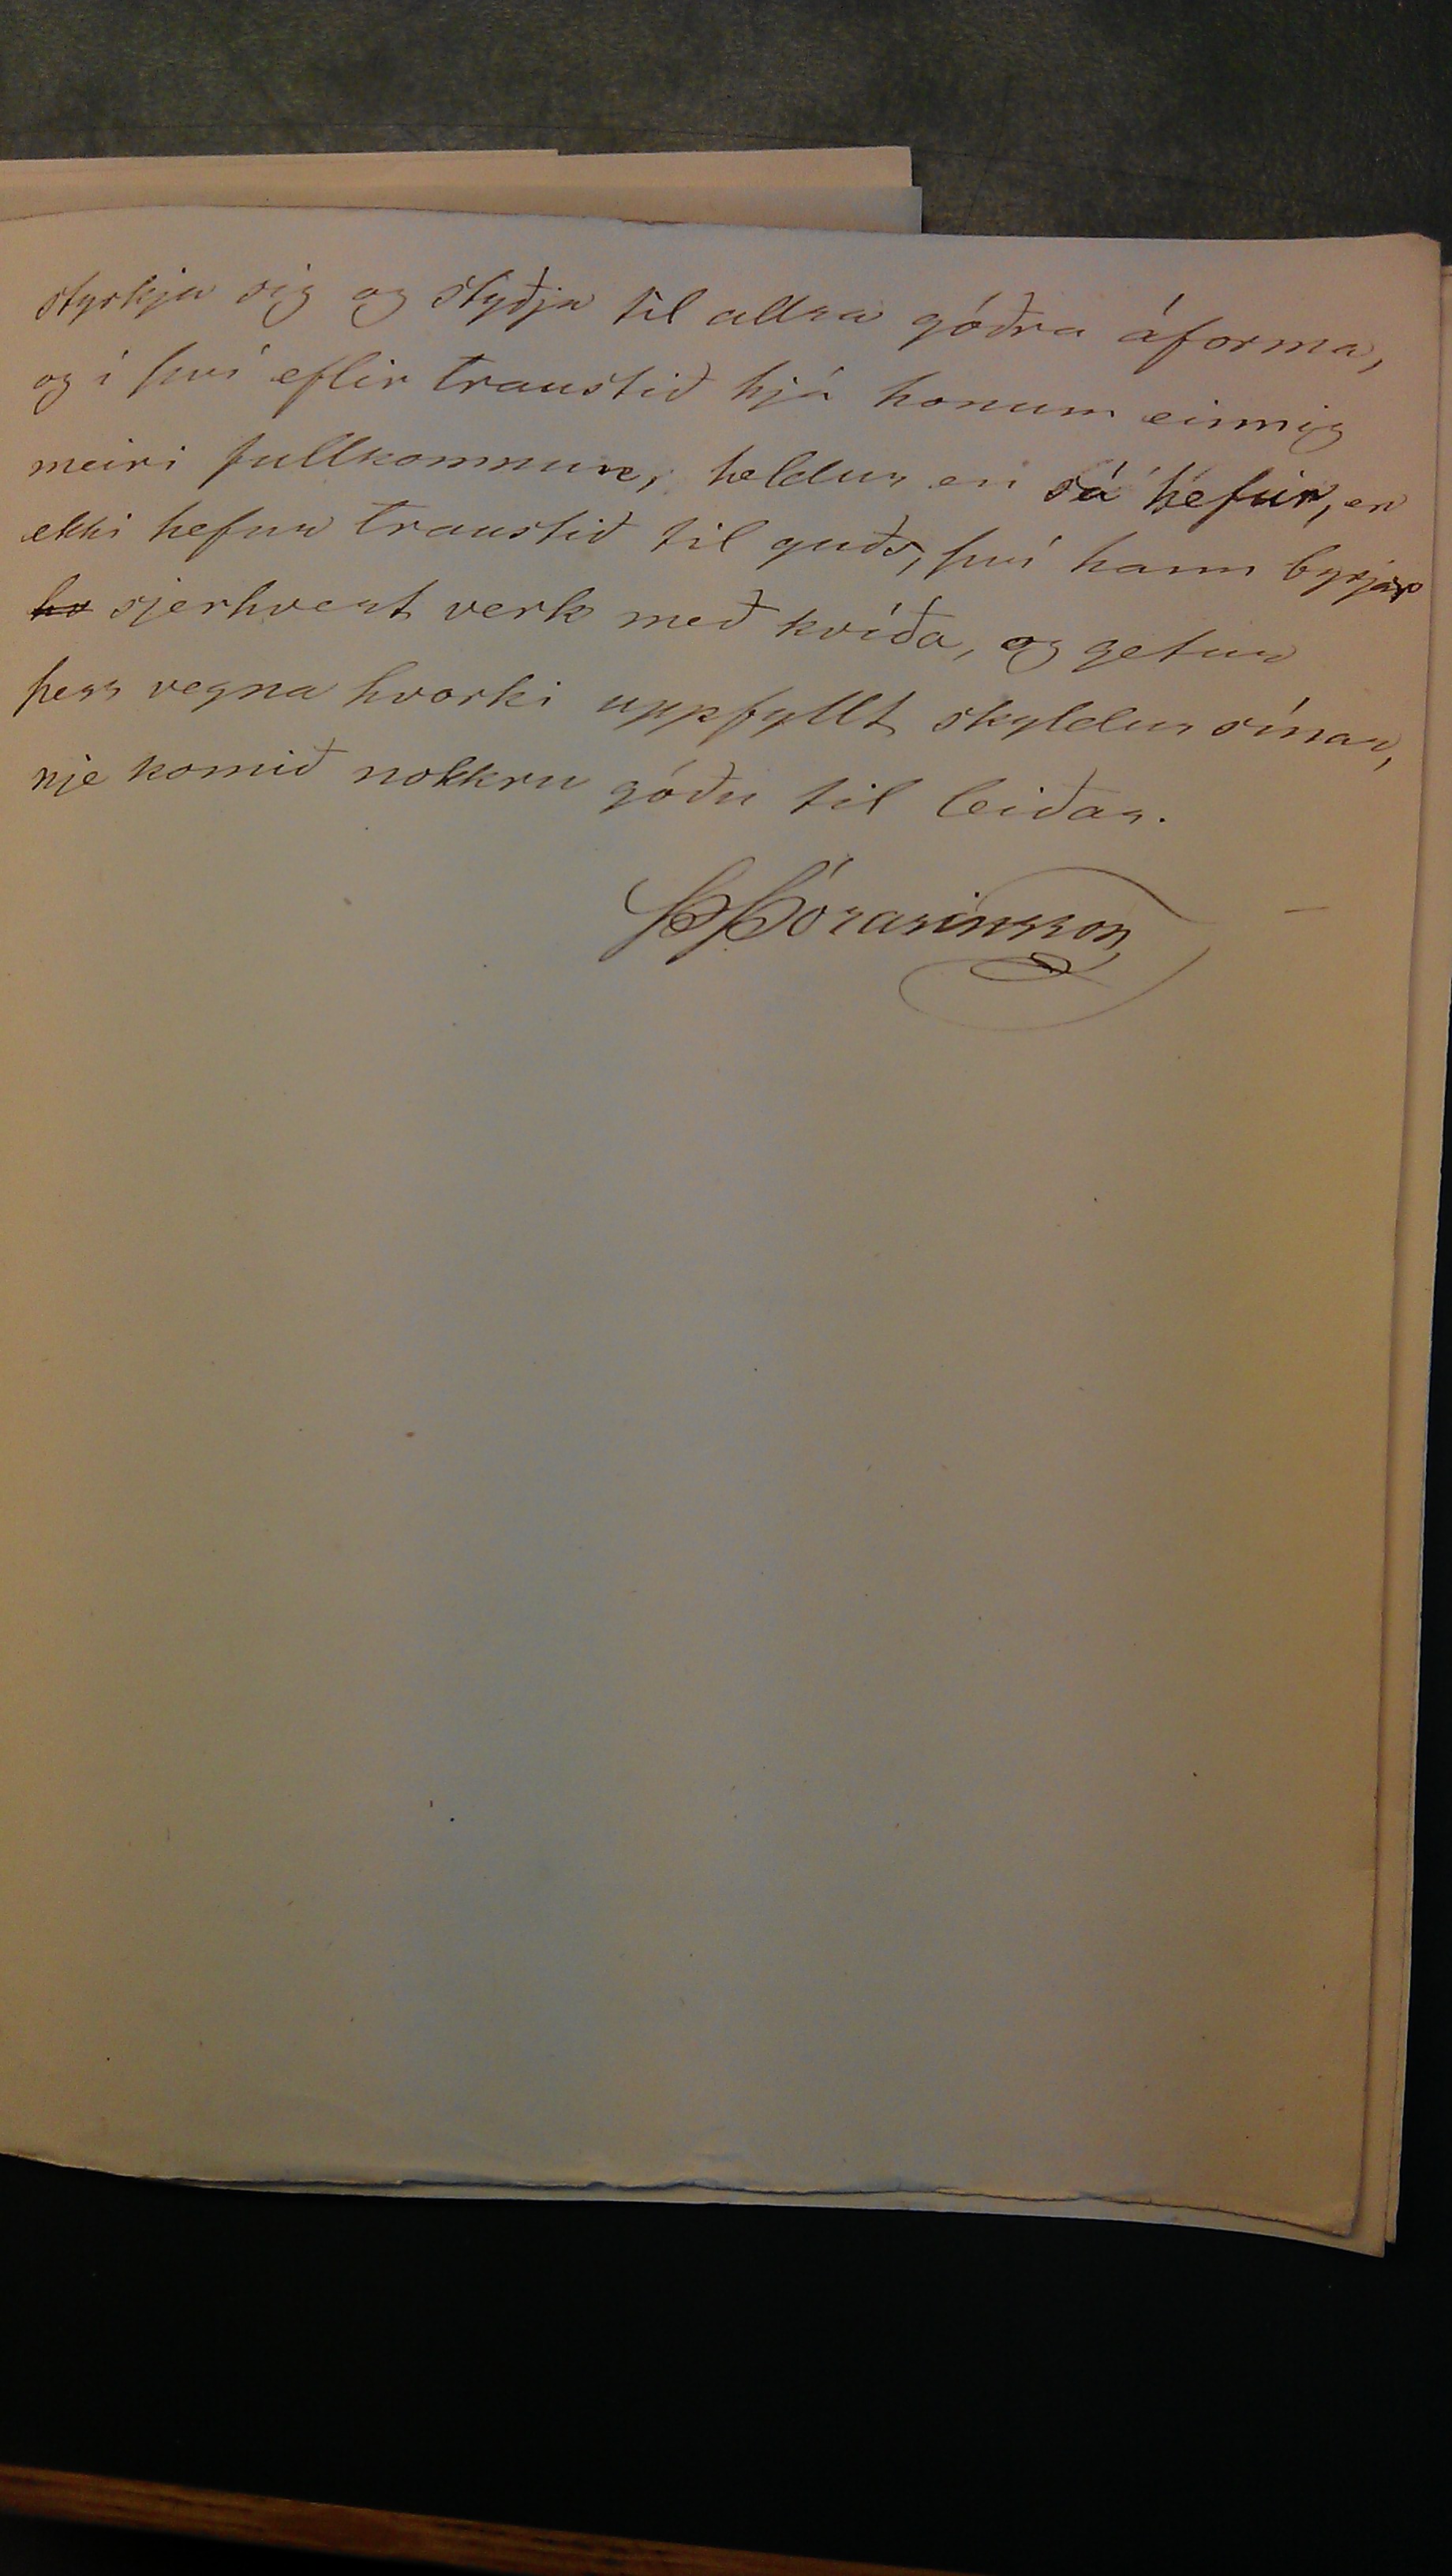 styrkja sig og styðja til allra góðra áforma,
og í því eflir traustið hjá honum einnig
meiri fullkomnun, heldur en sá hefur, er
ekki hefur traustið til guðs, því hann byrjar
hv sjerhvert verk með kvíða, og getur
þess vegna hvorki uppfyllt skyldur sínar,
nje komið nokkru góðu til leiðar.
Þ Þórarinsson